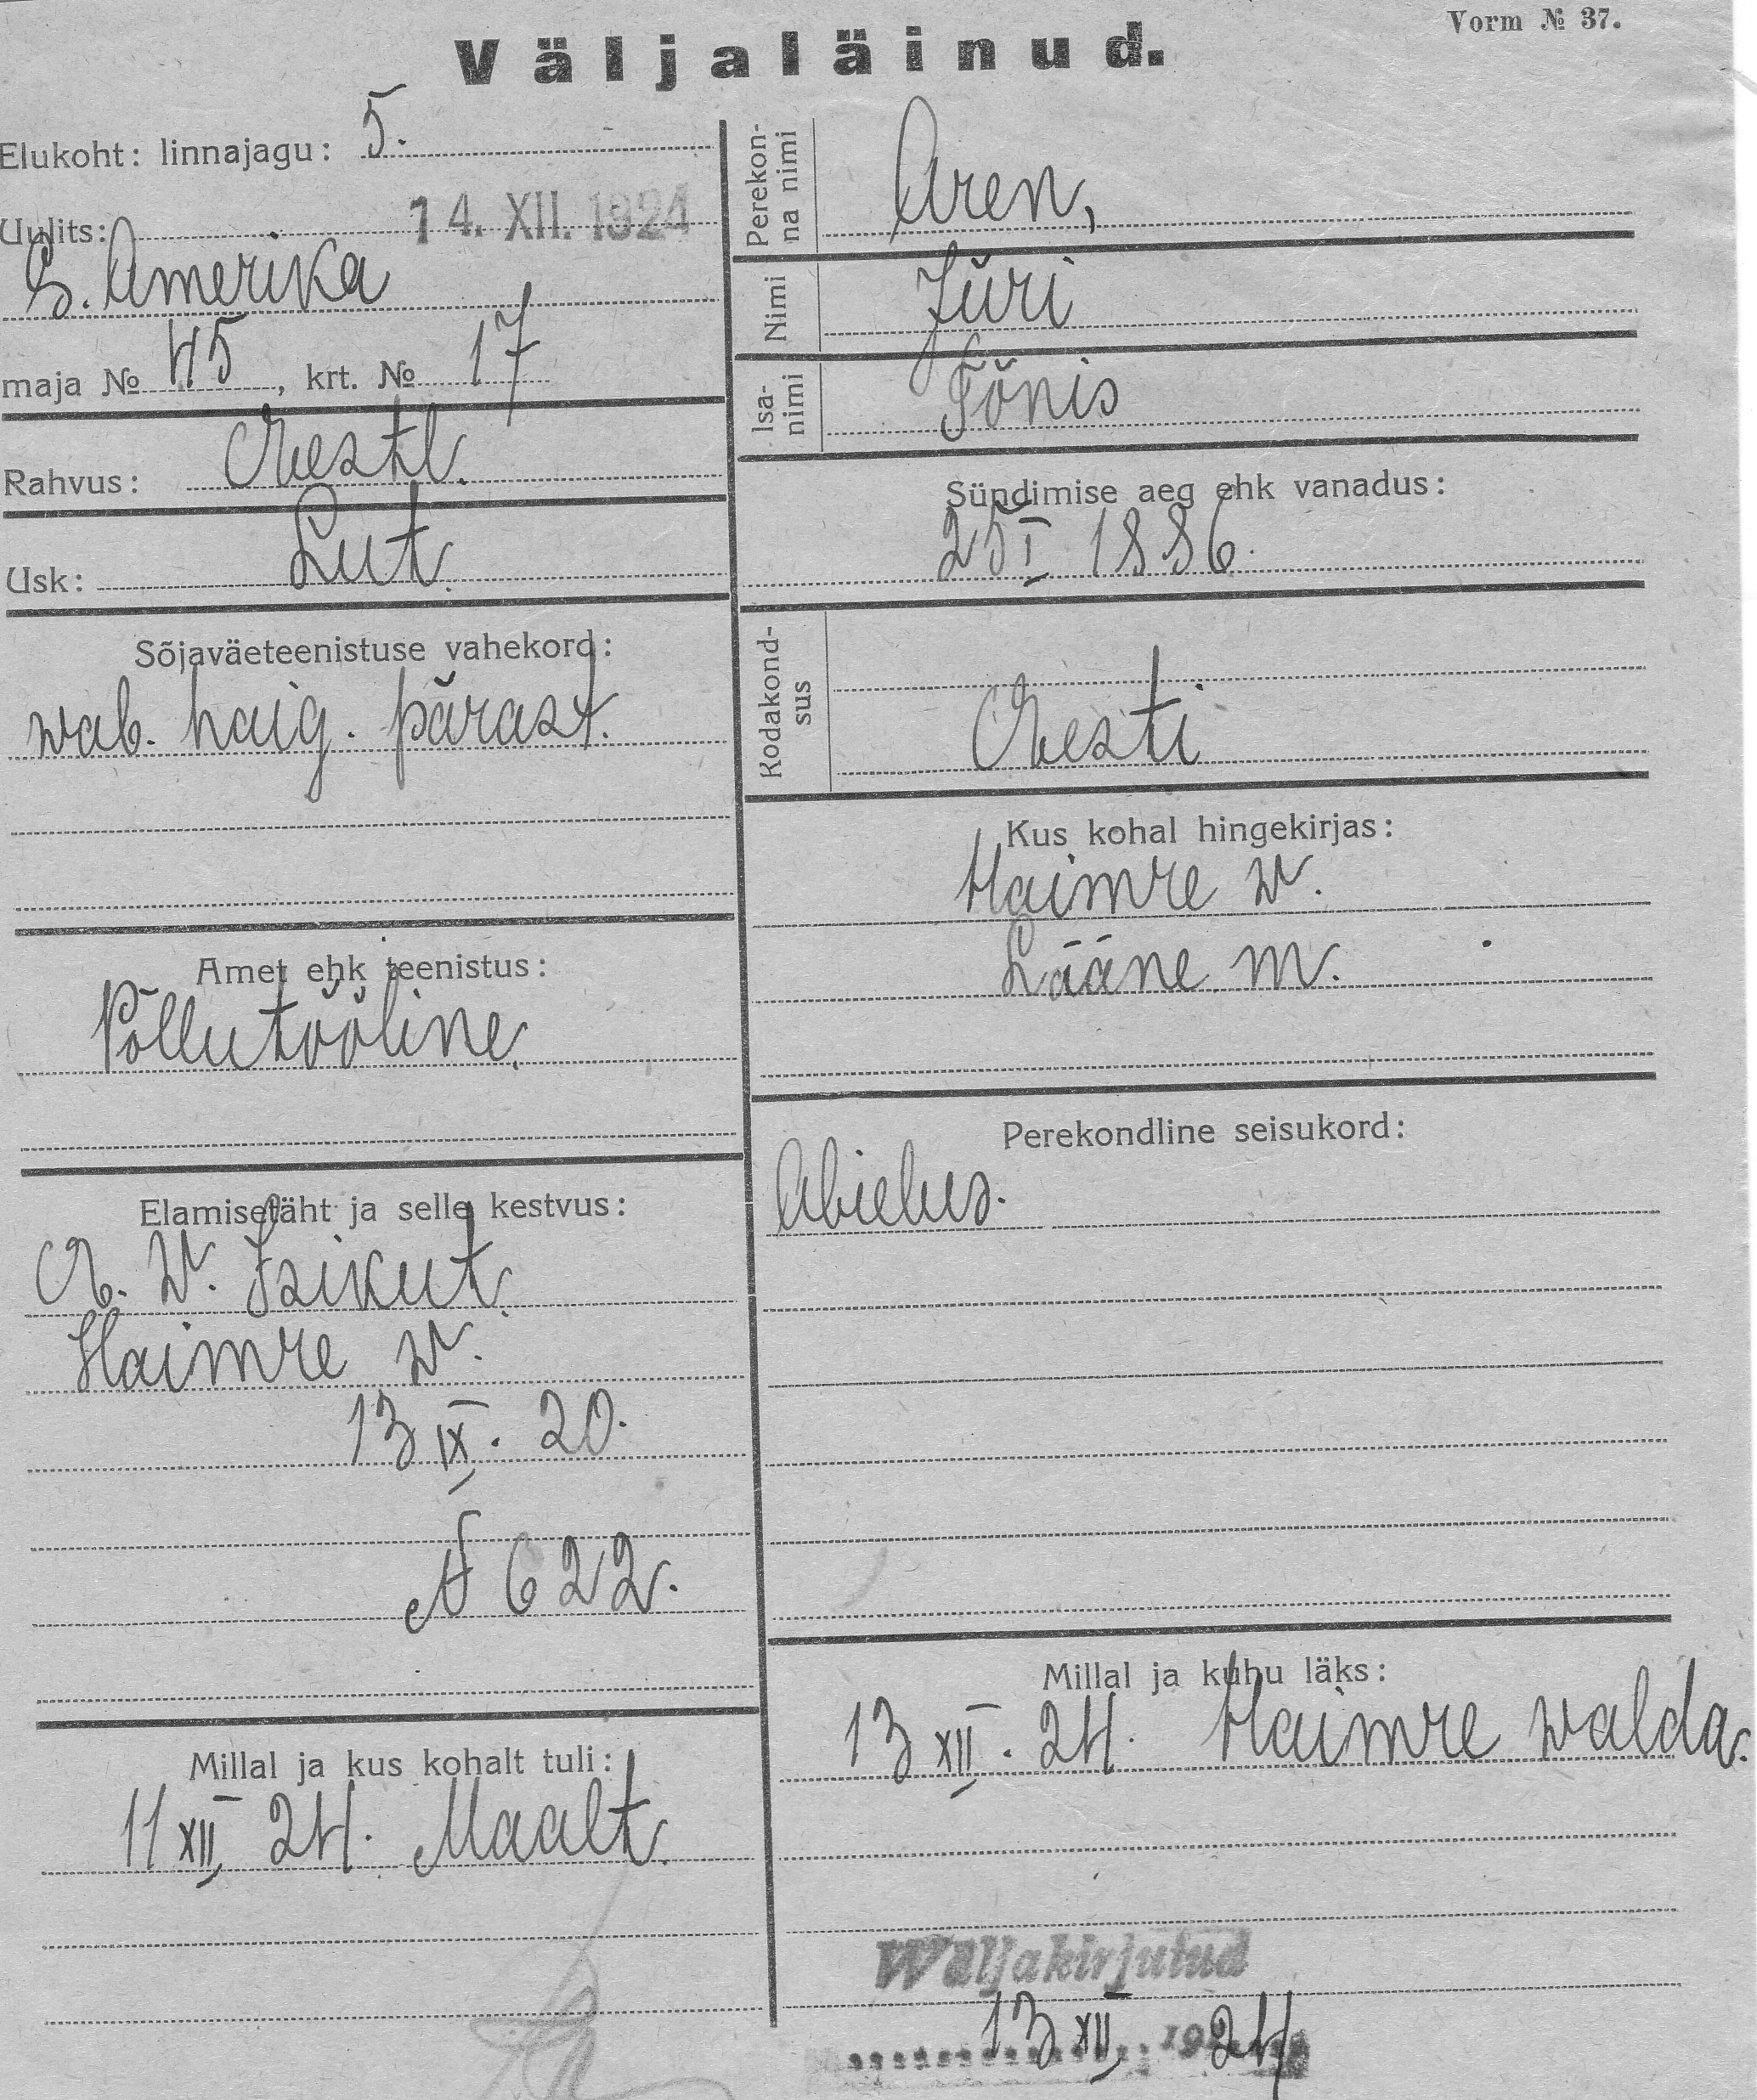 Vorm № 37.
Väljaläinud.
Elukoht: linnajagu: 5.
Uulits: 14. XII. 1924
S. Amerika
maja № 45, krt. № 17
Rahvus: Eestl.
Usk: Lut.
Sõjaväeteenistuse vahekord:
wab. haig. pärast.
Amet ehk teenistus:
Põllutööline
Elamisetäht ja selle kestvus:
E. W. Isikut.
Haimre w.
13 IX. 20.
N 622.
Millal ja kus kohalt tuli:
11 XII 24. Maalt.
Perekonna nimi
Aren,
Nimi
Jüri
Isanimi
Tõnis
Sündimise aeg ehk vanadus:
25 I 1886.
Kodakondsus
Eesti
Kus kohal hingekirjas:
Haimre w.
Lääne m.
Perekondline seisukord:
Abielus.
Millal ja kuhu läks:
13 XII. 24. Haimre walda.
Wäljakirjutud
13 XII 1924